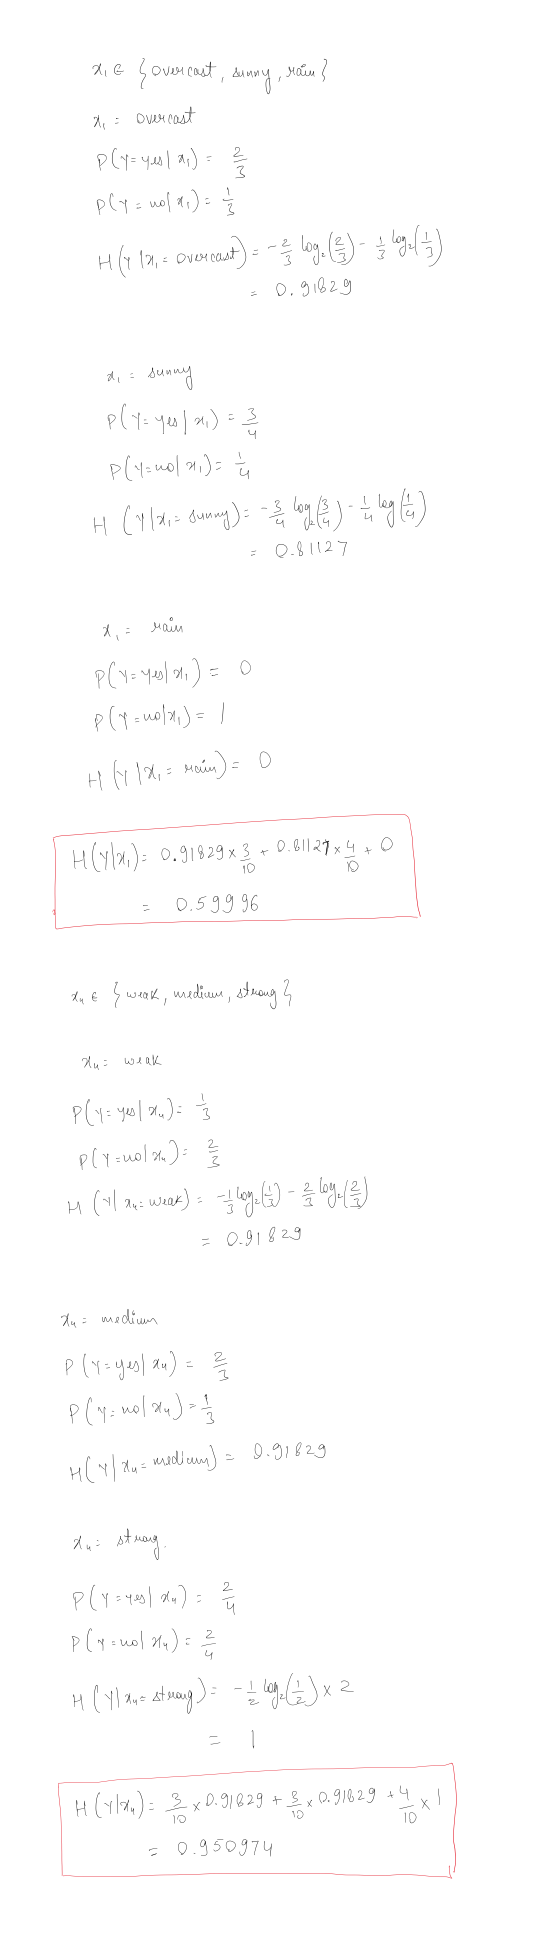 x₁ ∈ {overcast, sunny, rain}
x₁ = overcast
P(Y=yes | x₁) = 2/3
P(Y=no | x₁) = 1/3
H(Y | x₁ = overcast) = -2/3 log₂(2/3) - 1/3 log₂(1/3)
= 0.91829
x₁ = sunny
P(Y=yes | x₁) = 3/4
P(Y=no | x₁) = 1/4
H (Y | x₁ = sunny) = -3/4 log₂(3/4) - 1/4 log(1/4)
= 0.81127
x₁ = rain
P(Y=yes | x₁) = 0
P(Y=no | x₁) = 1
H (Y | x₁ = rain) = 0
H(Y|x₁) = 0.91829 × 3/10 + 0.81127 × 4/10 + 0
= 0.59996
x₄ ∈ {weak, medium, strong}
x₄ = weak
P(Y=yes | x₄) = 1/3
P(Y=no | x₄) = 2/3
H (Y | x₄ = weak) = -1/3 log₂(1/3) - 2/3 log₂(2/3)
= 0.91829
x₄ = medium
P(Y=yes | x₄) = 2/3
P(Y=no | x₄) = 1/3
H(Y | x₄ = medium) = 0.91829
x₄ = strong.
P(Y=yes | x₄) = 2/4
P(Y=no | x₄) = 2/4
H (Y | x₄ = strong) = -1/2 log₂(1/2) × 2
= 1
H (Y|x₄) = 3/10 × 0.91829 + 3/10 × 0.91829 + 4/10 × 1
= 0.950974